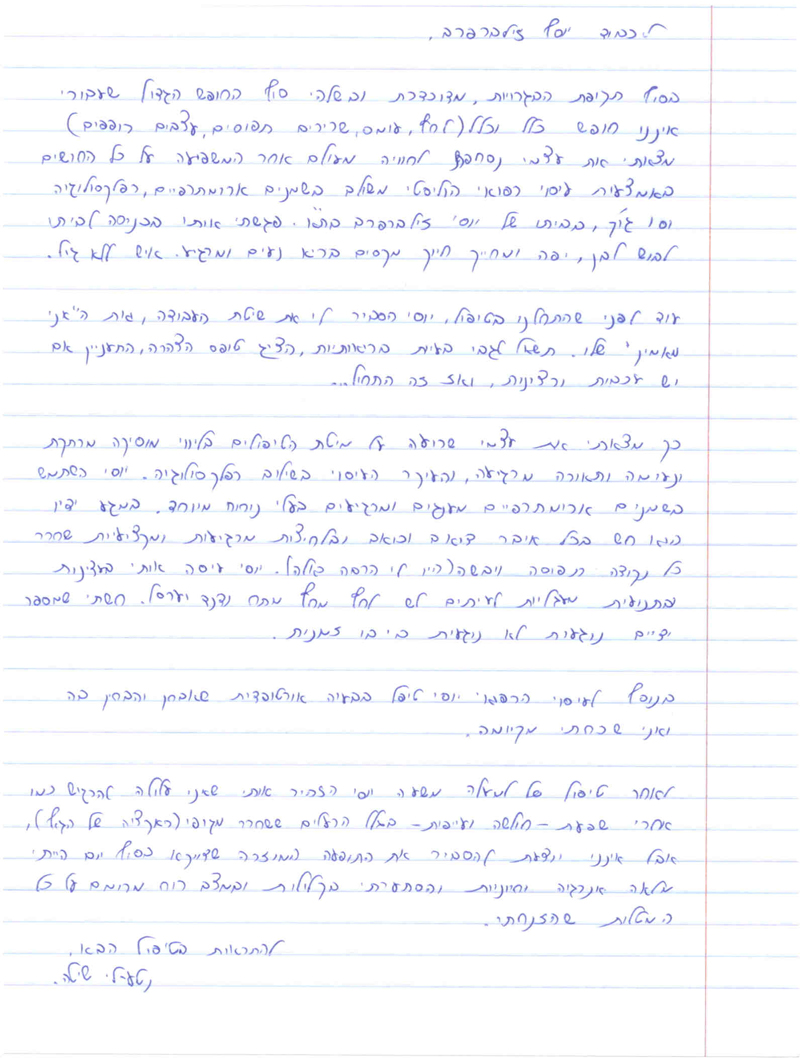 לכבוד יוסף זילברפרב,
בסוף תקופת הבגרויות, מדוכדכת ובשלהי סוף החופש הגדול שעבורי
איננו חופש כלל וכלל (לחץ, עומס, שרירים תפוסים, עצבים רופפים)
מצאתי את עצמי נסחפת לחוויה מעולם אחר המשפיעה על כל החושים
באמצעות עיסוי רפואי הוליסטי משולב בשמנים ארומתרפיים, רפלקסולוגיה
וסו ג'וק, בביתו של יוסי זילברפרב בת"ו. פגשתי אותו בכניסה לביתו
לבוש לבן, יפה ומחייך חיוך מקסים בריא נעים ומרגיע. איש ללא גיל.
עוד לפני שהתחלנו בטיפול, יוסי הסביר לי את שיטת העבודה, את ה"אני
מאמין" שלו. תשאל לגבי בעיות בריאותיות, הציג טופס הצהרה, התעניין אם
יש עכבות ורצינות, ואז זה התחיל...
כך מצאתי את עצמי שרועה על מיטת הטיפולים בליווי מוסיקה מרתקת
ונעימה ותאורה מרגיעה, והעיקר העיסוי בשילוב רפלקסולוגיה. יוסי השתמש
בשמנים ארומתרפיים מענגים ומרגיעים בעלי ניחוח מיוחד. במגע ידיו
הוא חש בכל איבר דואב וכואב ובלחיצות מרגיעות ומקצועיות שחרר
כל נקודה תפוסה ויבשה (היו לי הרבה כאלה). יוסי עיסה אותי בעדינות
בתנועות מעגליות לעיתים לש לחץ מחץ מתח נדנד וערסל. חשתי שמספר
ידיים נוגעות לא נוגעות בי בו זמנית.
בנוסף לעיסוי הרפואי יוסי טיפל בבעיה אורטופדית שאובחן והבחין בה
ואני שכחתי מקיומה.
לאחר טיפול של למעלה משעה יוסי הזהיר אותי שאני עלולה להרגיש כמו
אחרי שפעת - חולשה ועייפות - בגלל הרעלים ששחרר מגופי (ראקציה של הגוף),
אבל אינני יודעת להסביר את התופעה המוזרה שדווקא בסוף יום הייתי
מלאה אנרגיה וחיוניות והסתערתי בקלילות ובמצב רוח מרומם על כל
המטלות שהזנחתי.
להתראות בטיפול הבא,
נטע-לי שילה.